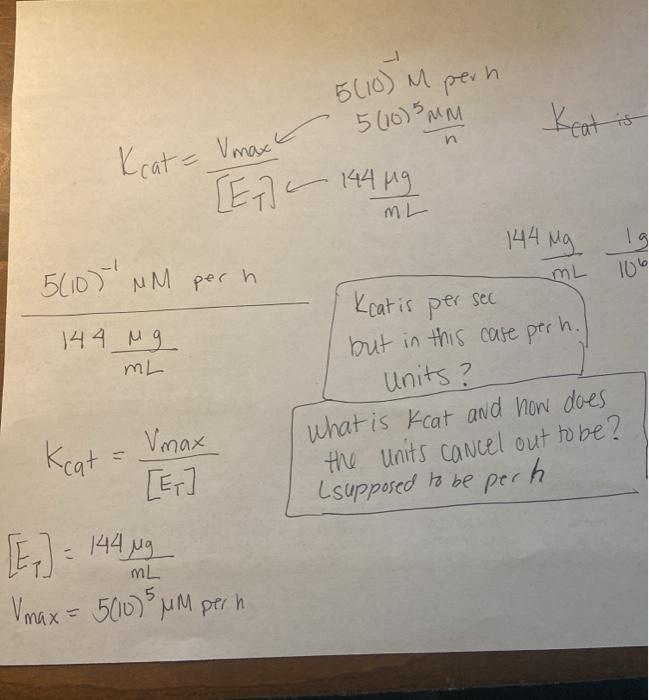 5(10)⁻¹ M per h
5(10)⁵ μM/h
Kcat is
Kcat = Vmax/[ET]
144 μg/mL
144 μg/mL 1g/10⁶
5(10)⁻¹ μM per h
144 μg/mL
Kcat is per sec
but in this case per h.
Units?
What is Kcat and how does
the units cancel out to be?
supposed to be per h
Kcat = Vmax/[ET]
[ET] = 144 μg/mL
Vmax = 5(10)⁵ μM per h